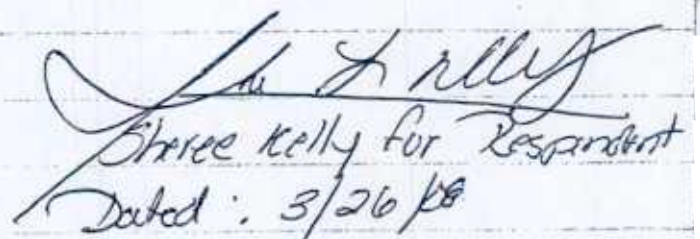 Sheree Kelly for Respondent
Dated : 3/26/08